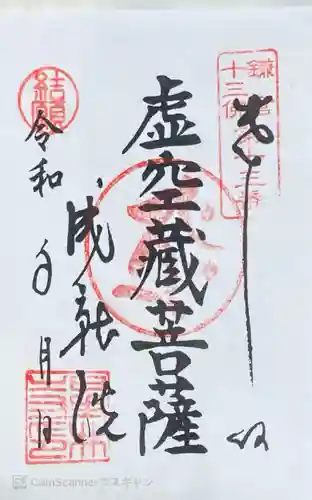 鎌倉
十三佛
第十三番
奉拝
虚空蔵菩薩
成就院
結願
令和 年 月 日
CamScannerでスキャン